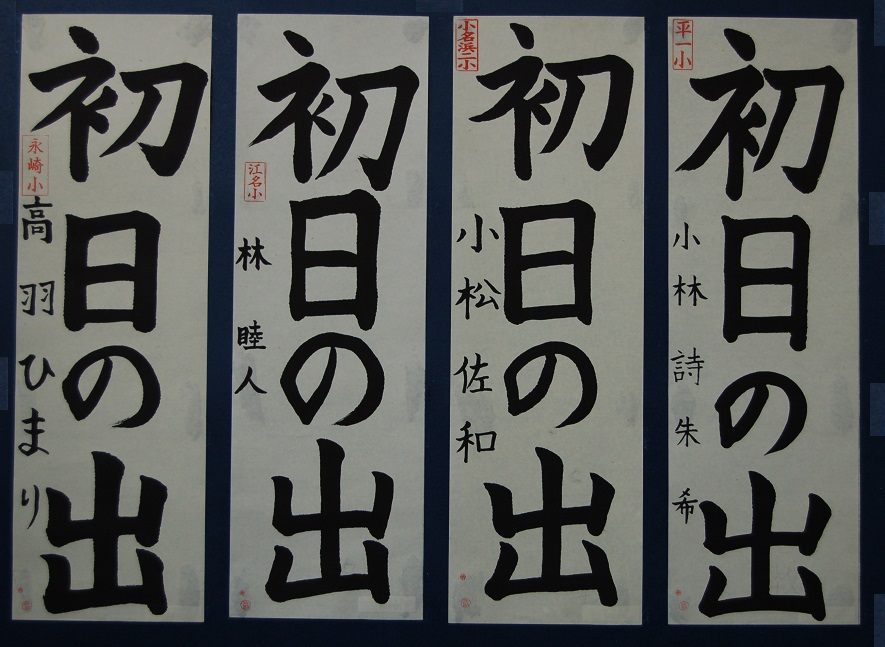 平一小
初日の出
小林詩朱希
小名浜二小
初日の出
小松佐和
江名小
初日の出
林睦人
永崎小
初日の出
高羽ひまり